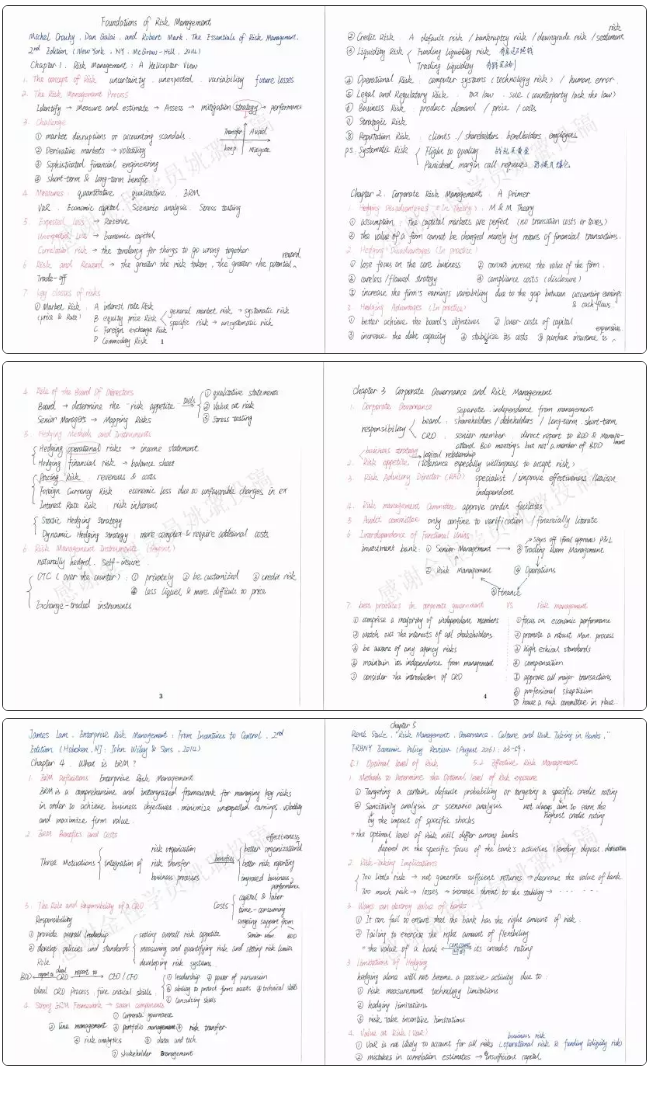 Foundations of Risk Management
Michel Crouhy, Dan Galai, and Robert Mark, The Essentials of Risk Management,
2nd Edition (New York, NY: McGraw-Hill, 2014)
Chapter 1. Risk Management: A Helicopter View
1. The concept of Risk uncertainty, unexpected, variability future losses
2. The Risk Management Process
Identify → Measure and estimate → Assess → mitigation strategy → performance
3. Challenge
Transfer Avoid
Keep Mitigate
① market disruptions or accounting scandals
② Derivative markets → volatility
③ Sophisticated financial engineering
④ short-term & long-term benefit
4. Measures: quantitative, qualitative ERM
VaR, Economic capital, Scenario analysis, Stress testing
5. Expected Loss → Reserve
Unexpected Loss → Economic capital
Correlation risk → the tendency for things to go wrong together
6. Risk and Reward → the greater the risk taken, the greater the potential reward
Trade-off
7. Key classes of risks
① Market Risk (price & Rate)
A interest rate Risk
B equity price Risk
general market risk → systematic risk
specific risk → unsystematic risk
C Foreign exchange Risk
D Commodity Risk
1
② Credit Risk: A default risk / bankruptcy risk / downgrade risk / settlement risk
③ Liquidity Risk
Funding liquidity risk
Trading liquidity
④ Operational Risk: computer systems (technology risk) / human error
⑤ Legal and Regulatory Risk: tax law, sue (counterparty lack the law)
⑥ Business Risk product demand / price / costs
⑦ Strategic Risk
⑧ Reputation Risk: clients / shareholders bondholders employees
ps. Systematic Risk
Flight to quality
Panicked margin call requests
Chapter 2. Corporate Risk Management: A primer
1. Hedging Disadvantages (In Theory): M & M Theory
① assumption: the capital markets are perfect (no transaction costs or taxes)
② the value of a firm cannot be changed merely by means of financial transactions.
2. Hedging Disadvantages (In practice)
① lose focus on the core business ② cannot increase the value of the firm
③ careless / flawed strategy ④ compliance costs (disclosure)
⑤ increase the firm's earnings variability due to the gap between accounting earnings & cash flows
3. Hedging Advantages (In practice)
① better achieve the board's objectives ② lower costs of capital
③ increase the debt capacity ④ stabilize its costs ⑤ purchase insurance is expensive
4. Role of the Board Of Directors
Board → determine the risk appetite tools
① qualitative statements
② Value at risk
③ Stress testing
Senior Managers → Mapping Risks
5. Hedging Methods and Instruments
Hedging operational risks → income statement
Hedging financial risk → balance sheet
Pricing Risk revenues & costs
Foreign Currency Risk economic loss due to unfavorable changes in ex
Interest Rate Risk risk inherent
Static Hedging strategy
Dynamic Hedging strategy: more complex & require additional costs
6. Risk Management Instruments
naturally hedged, self-insure
OTC (over the counter): ① privately ② be customized ③ credit risk
④ less liquid & more difficult to price
Exchange-traded instruments
3
Chapter 3 Corporate Governance and Risk Management
1. Corporate Governance: Separate, independence from management
responsibility
board: shareholders / debtholders / long-term, short-term
CRO: senior member direct report to BOD & Management
attend BOD meetings but not a member of BOD
business strategy
logical relationship
2. Risk appetite (tolerance especially willingness to accept risk)
3. Risk Advisory Director (RAD) specialist / improve effectiveness / liaison
independent
4. Risk management Committee approve credit facilities
5. Audit committee only confine to verification / financially literate
6. Interdependence of Functional Units
Investment bank: ① Senior Management → ③ Trading Room Management
② Risk Management ④ Operations
⑤ Finance
7. Best practices in corporate governance vs risk management
① comprise a majority of independent members
② watch out the interests of all stakeholders
③ be aware of any agency risks
④ maintain its independence from management
⑤ consider the introduction of CRO
① focus on economic performance
② promote a robust man. process
③ high ethical standards
④ compensation
⑤ approve all major transactions
⑥ professional skepticism
⑦ have a risk committee in place
4
James Lam, Enterprise Risk Management: From Incentives to Control, 2nd
Edition (Hoboken, NJ: John Wiley & Sons, 2014)
Chapter 4. What is ERM?
1. ERM Definitions Enterprise Risk Management
ERM is a comprehensive and integrated framework for managing key risks
in order to achieve business objectives, minimize unexpected earnings volatility
and maximize firm value.
2. ERM Benefits and Costs
Three Motivations: integration of
risk organization
risk transfer
business process
benefits
better organizational effectiveness
better risk reporting
improved business performance
Costs
capital & labor
time-consuming
ongoing support from senior man. BOD
3. The Role and responsibility of a CRO
Responsibility
① provide overall leadership
② develop policies and standards
setting overall risk appetite
measuring and quantifying risk and setting risk limits
developing risk systems
Role
BOD CRO report to CEO / CFO
Ideal CRO Process five critical skills
① leadership ② power of persuasion
③ ability to protect firm's assets ④ technical skills
⑤ consulting skills
4. Strong ERM Framework → seven components
① Corporate governance
② line management ③ portfolio management ④ risk transfer
⑤ risk analytics ⑥ data and tech.
⑦ stakeholder management
Chapter 5
René Stulz, "Risk Management, Governance, Culture and Risk Taking in Banks,"
FRBNY Economic Policy Review (August 2016): 43-59.
5.1 Optimal level of Risk 5.2 Effective Risk Management
1. Methods to Determine the Optimal level of Risk exposure
① Targeting a certain default probability or targeting a specific credit rating
② Sensitivity analysis or scenario analysis not always aim to earn the highest credit rating
by the impact of specific shocks
the optimal level of risk will differ among banks
depend on the specific focus of the bank's activities (lending deposit
2. Risk-taking Implications
Too little risk → not generate sufficient returns → decrease the value of bank
Too much risk → losses → increase threat to the stability → ......
3. Ways can destroy value of banks
① It can fail to ensure that the bank has the right amount of risk.
② Failing to exercise the right amount of flexibility
the value of a bank its credit rating
3. Limitations of Hedging
hedging alone will not become a passive activity due to:
① risk measurement technology limitations
② hedging limitations
③ risk taker incentive limitations
4. Value at Risk (VaR)
① VaR is not likely to account for all risks (operational risk & funding liquidity risks business risk
② mistakes in correlation estimates → insufficient capital